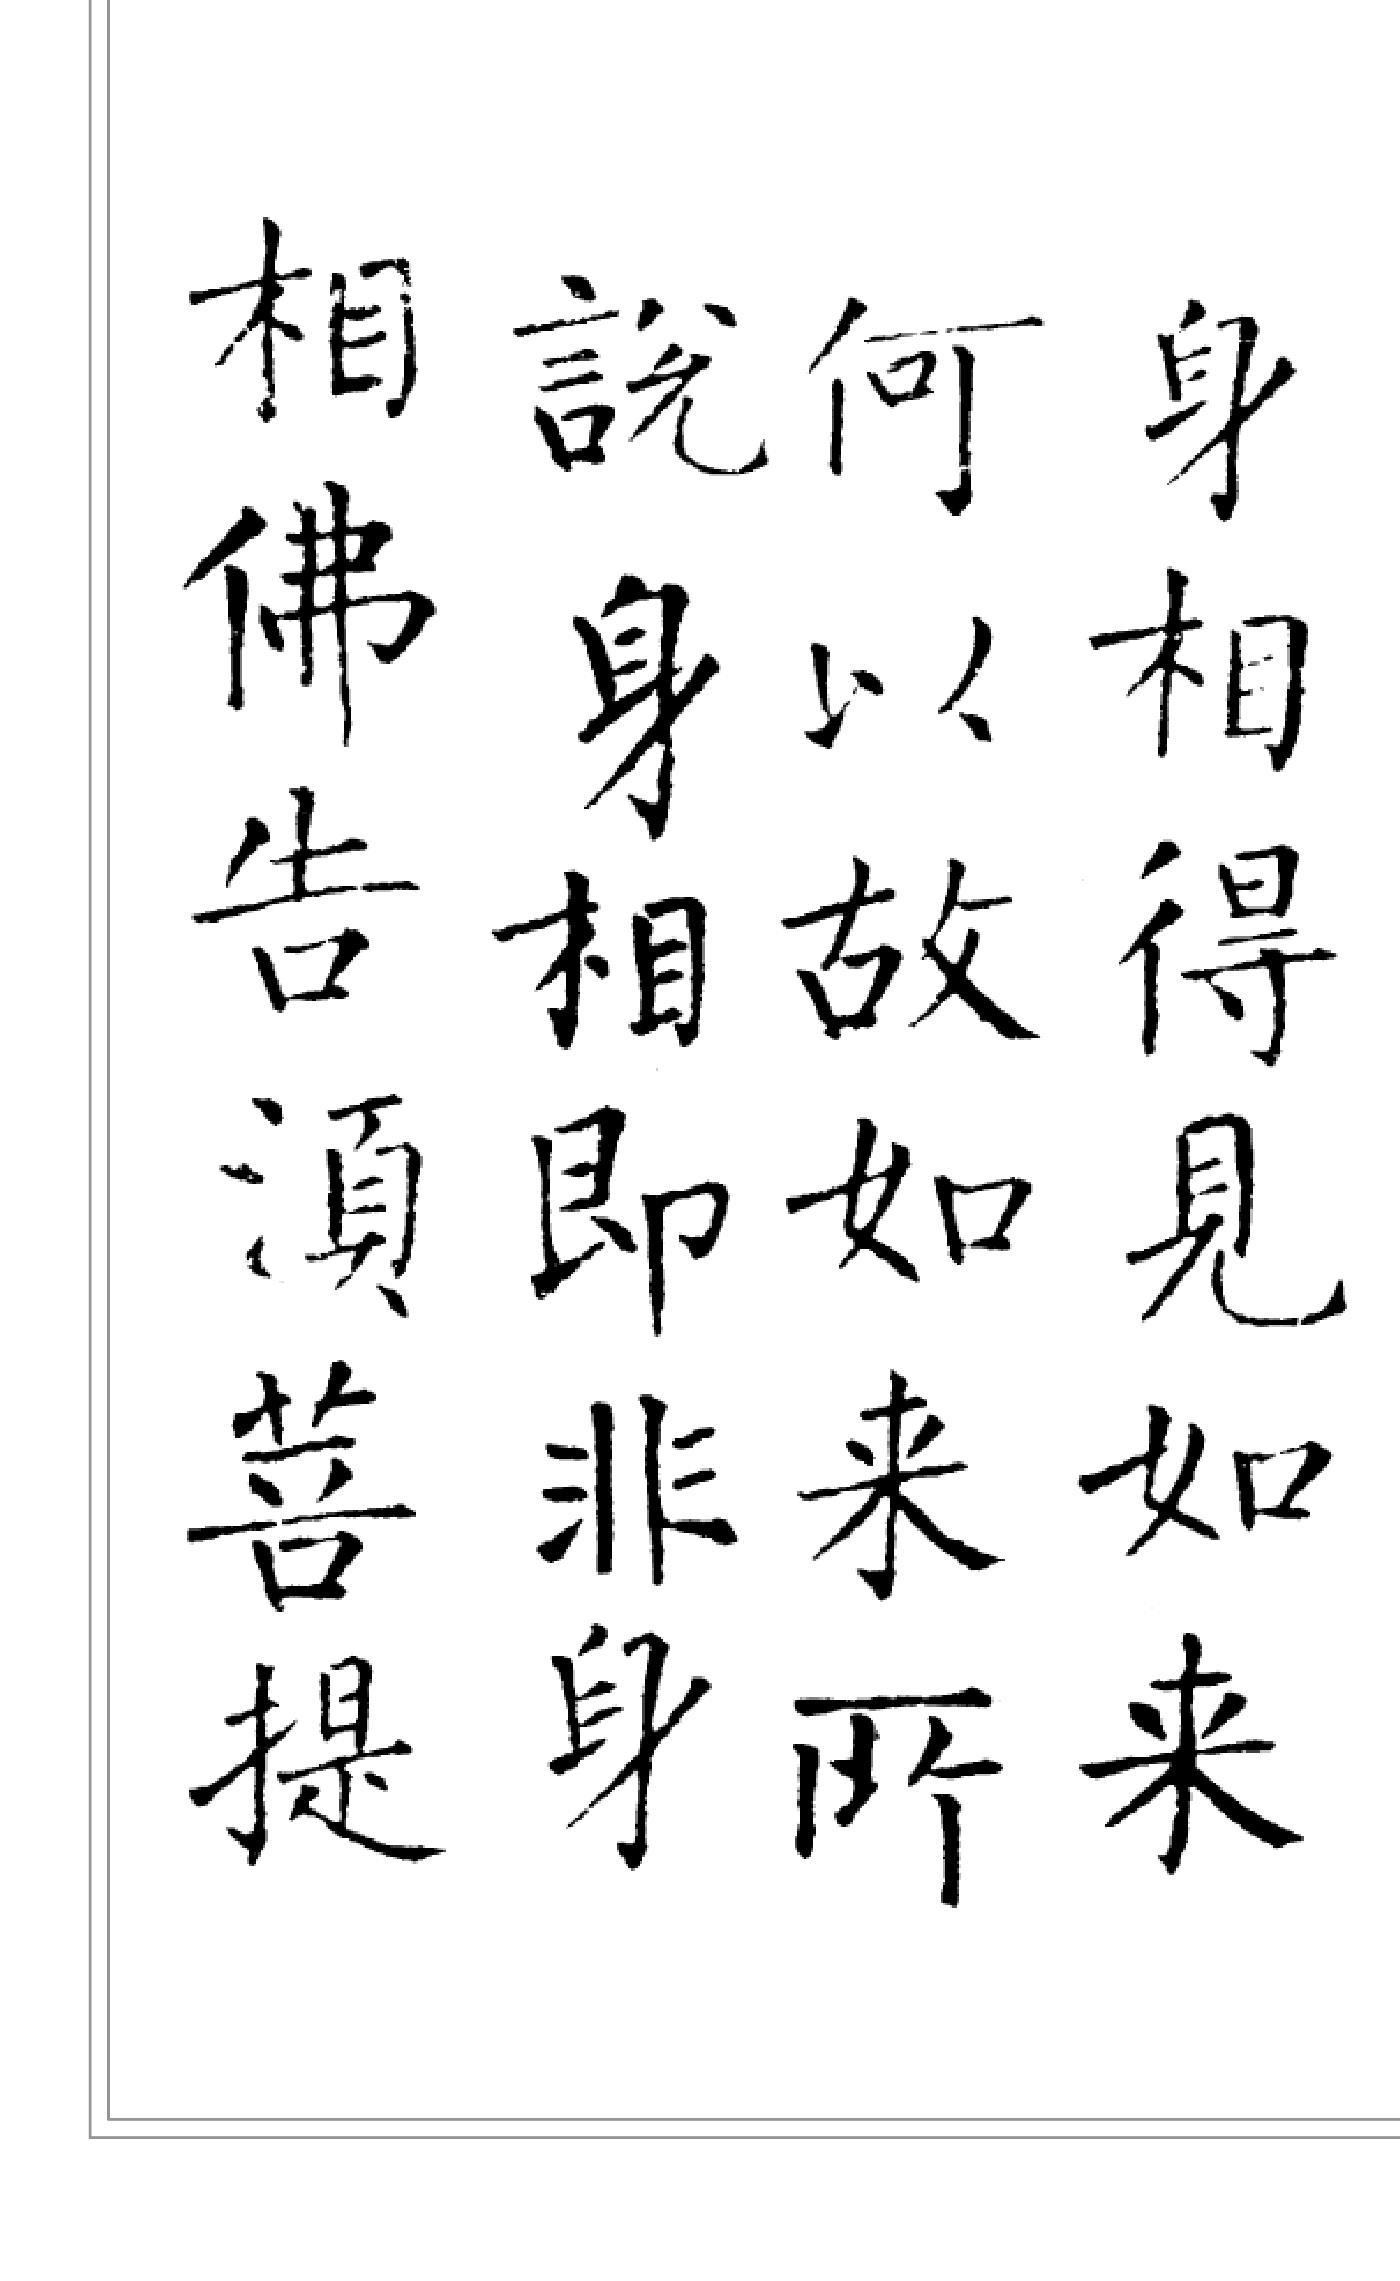 身相得見如来
何以故如来所
說身相即非身
相佛告湏菩提